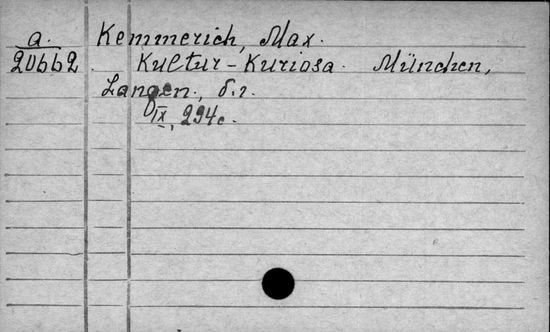 a. Kemmerich, Max.
20662. Kultur-Kuriosa. München,
Langen, б.г.
IX, 294с.